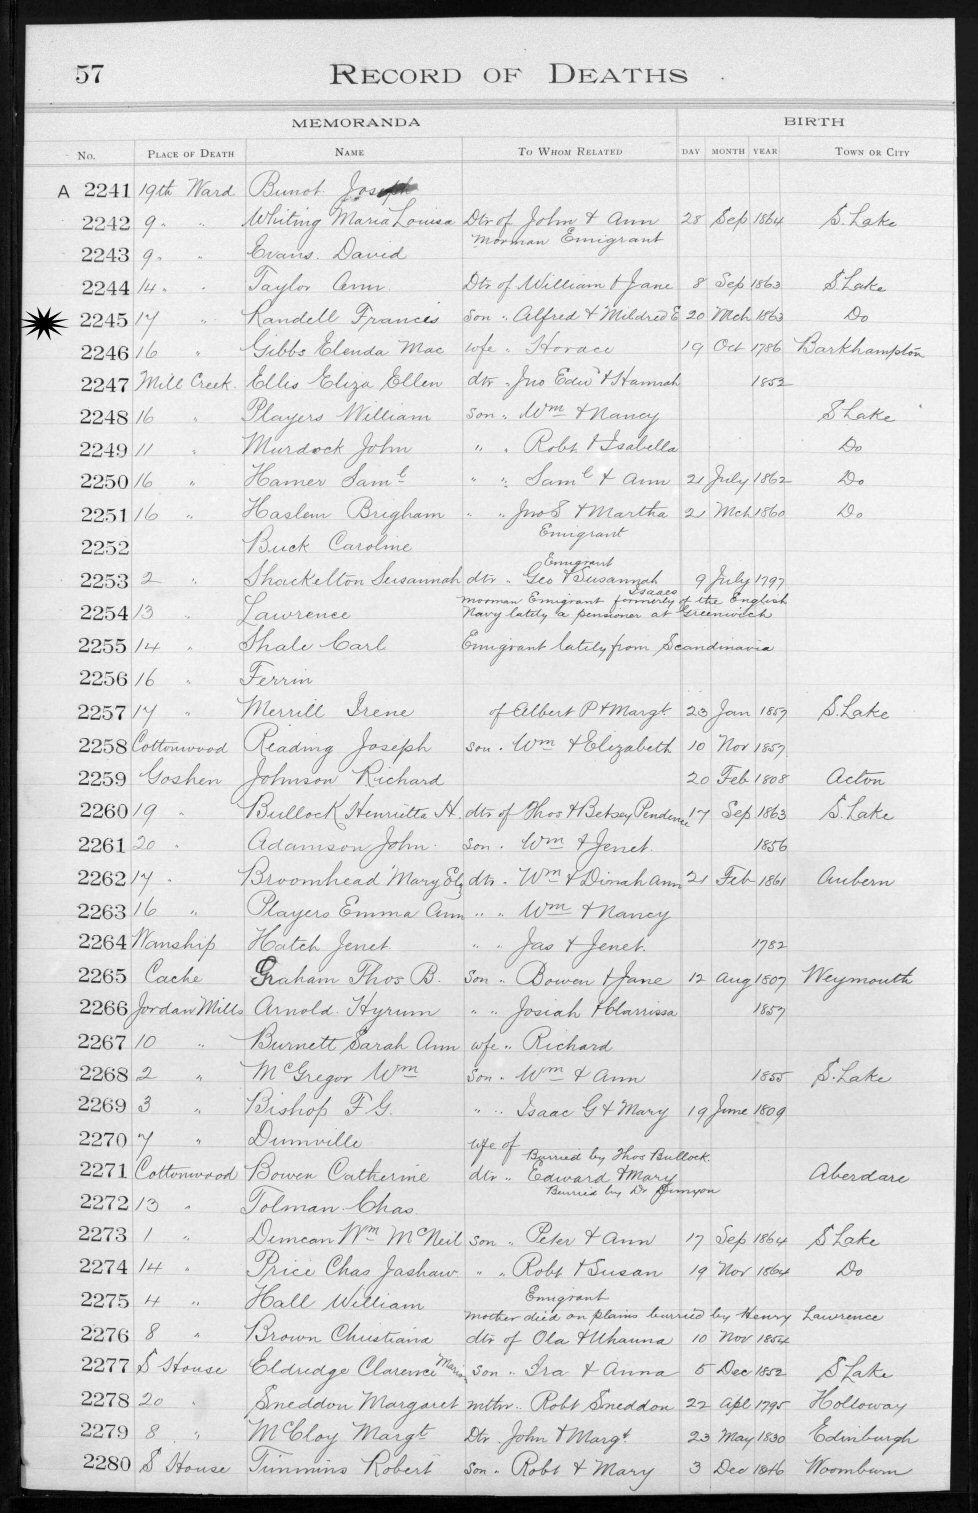 57 RECORD OF DEATHS
MEMORANDA BIRTH
No. PLACE OF DEATH NAME TO WHOM RELATED DAY MONTH YEAR TOWN OR CITY
A 2241 19th Ward Bunot. Joseph
2242 9 " " Whiting Maria Louisa Dtr of John & Ann 28 Sep 1864 S. Lake
Morman Emigrant
2243 9 " " Evans. David
2244 14 " " Taylor Ann. Dtr of William & Jane 8 Sep 1863 S Lake
2245 17 " Randell Francis Son " Alfred & Mildred E 20 Mch 1863 Do
2246 16 " Gibbs Elenda Mac wfe " Horace 19 Oct 1786 Barkhampton
2247 Mill Creek. Ellis Eliza Ellen dtr " Jno Edwd & Hannah 1852
2248 16 " Players William son " Wm & Nancy S Lake
2249 11 " Murdock John " " Robt & Isabella Do
2250 16 " Hamer Saml " " Saml & Ann 21 July 1862 Do
2251 16 " Haslem Brigham " " Jno S & Martha 21 Mch 1860 Do
Emigrant
2252 Buck Caroline
Emigrant
2253 2 " Shackelton Susannah dtr " Geo & Susannah 9 July 1797
Isaacs
Morman Emigrant formerly of the English
2254 13 " Lawrence Navy lately a pensioner at Greenwich
2255 14 " Thale Carl Emigrant lately from Scandinavia
2256 16 " Ferrin
2257 17 " Merrill Irene of Albert P & Margt. 23 Jan 1857 S. Lake
2258 Cottonwood Reading Joseph son " Wm & Elizabeth 10 Nov 1857
2259 Goshen Johnson Richard 20 Feb 1808 Acton
2260 19 " Bullock Henrietta H. dtr of Thos & Betsey Pendence 17 Sep 1863 S. Lake
2261 20 " Adamson John. son " Wm & Jenet. 1856
2262 17 " Broomhead Mary Elz dtr " Wm & Dinah Ann 21 Feb 1861 Aubern
2263 16 " Players Emma Ann " " Wm & Nancy
2264 Wanship Hatch Jenet " " Jas & Jenet. 1782
2265 Cache Graham Thos B. Son " Bowen & Jane 12 Aug 1807 Weymouth
2266 Jordan Mills Arnold. Hyrum " " Josiah & Clarrissa 1857
2267 10 " Burnett Sarah Ann wfe " Richard
2268 2 " McGregor Wm Son " Wm & Ann 1855 S. Lake
2269 3 " Bishop F G. " " Isaac G & Mary 19 June 1809
2270 7 " Dumville wfe of
Burried by Thos Bullock.
2271 Cottonwood Bowen Catherine dtr " Edward & Mary Aberdare
Burried by Dr Dunyon
2272 13 " Tolman Chas
2273 1 " Duncan Wm McNeil son " Peter & Ann 17 Sep 1864 S Lake
2274 14 " Price Chas Jashaw. " " Robt & Susan 19 Nov 1864 Do
2275 4 " Hall William Emigrant
Mother died on plains burried by Henry Lawrence
2276 8 " Brown Chustiana dtr of Ola & Uhanna 10 Nov 1854
2277 S House Eldredge Clarence Marion son " Ira & Anna 5 Dec 1852 S Lake
2278 20 " Sneddon Margaret mthr " Robt Sneddon 22 Apl 1795 Holloway
2279 8 " McCloy Margt Dtr John & Margt 23 May 1830 Edinburgh
2280 S House Timmins Robert Son " Robt & Mary 3 Dec 1846 Woomburn